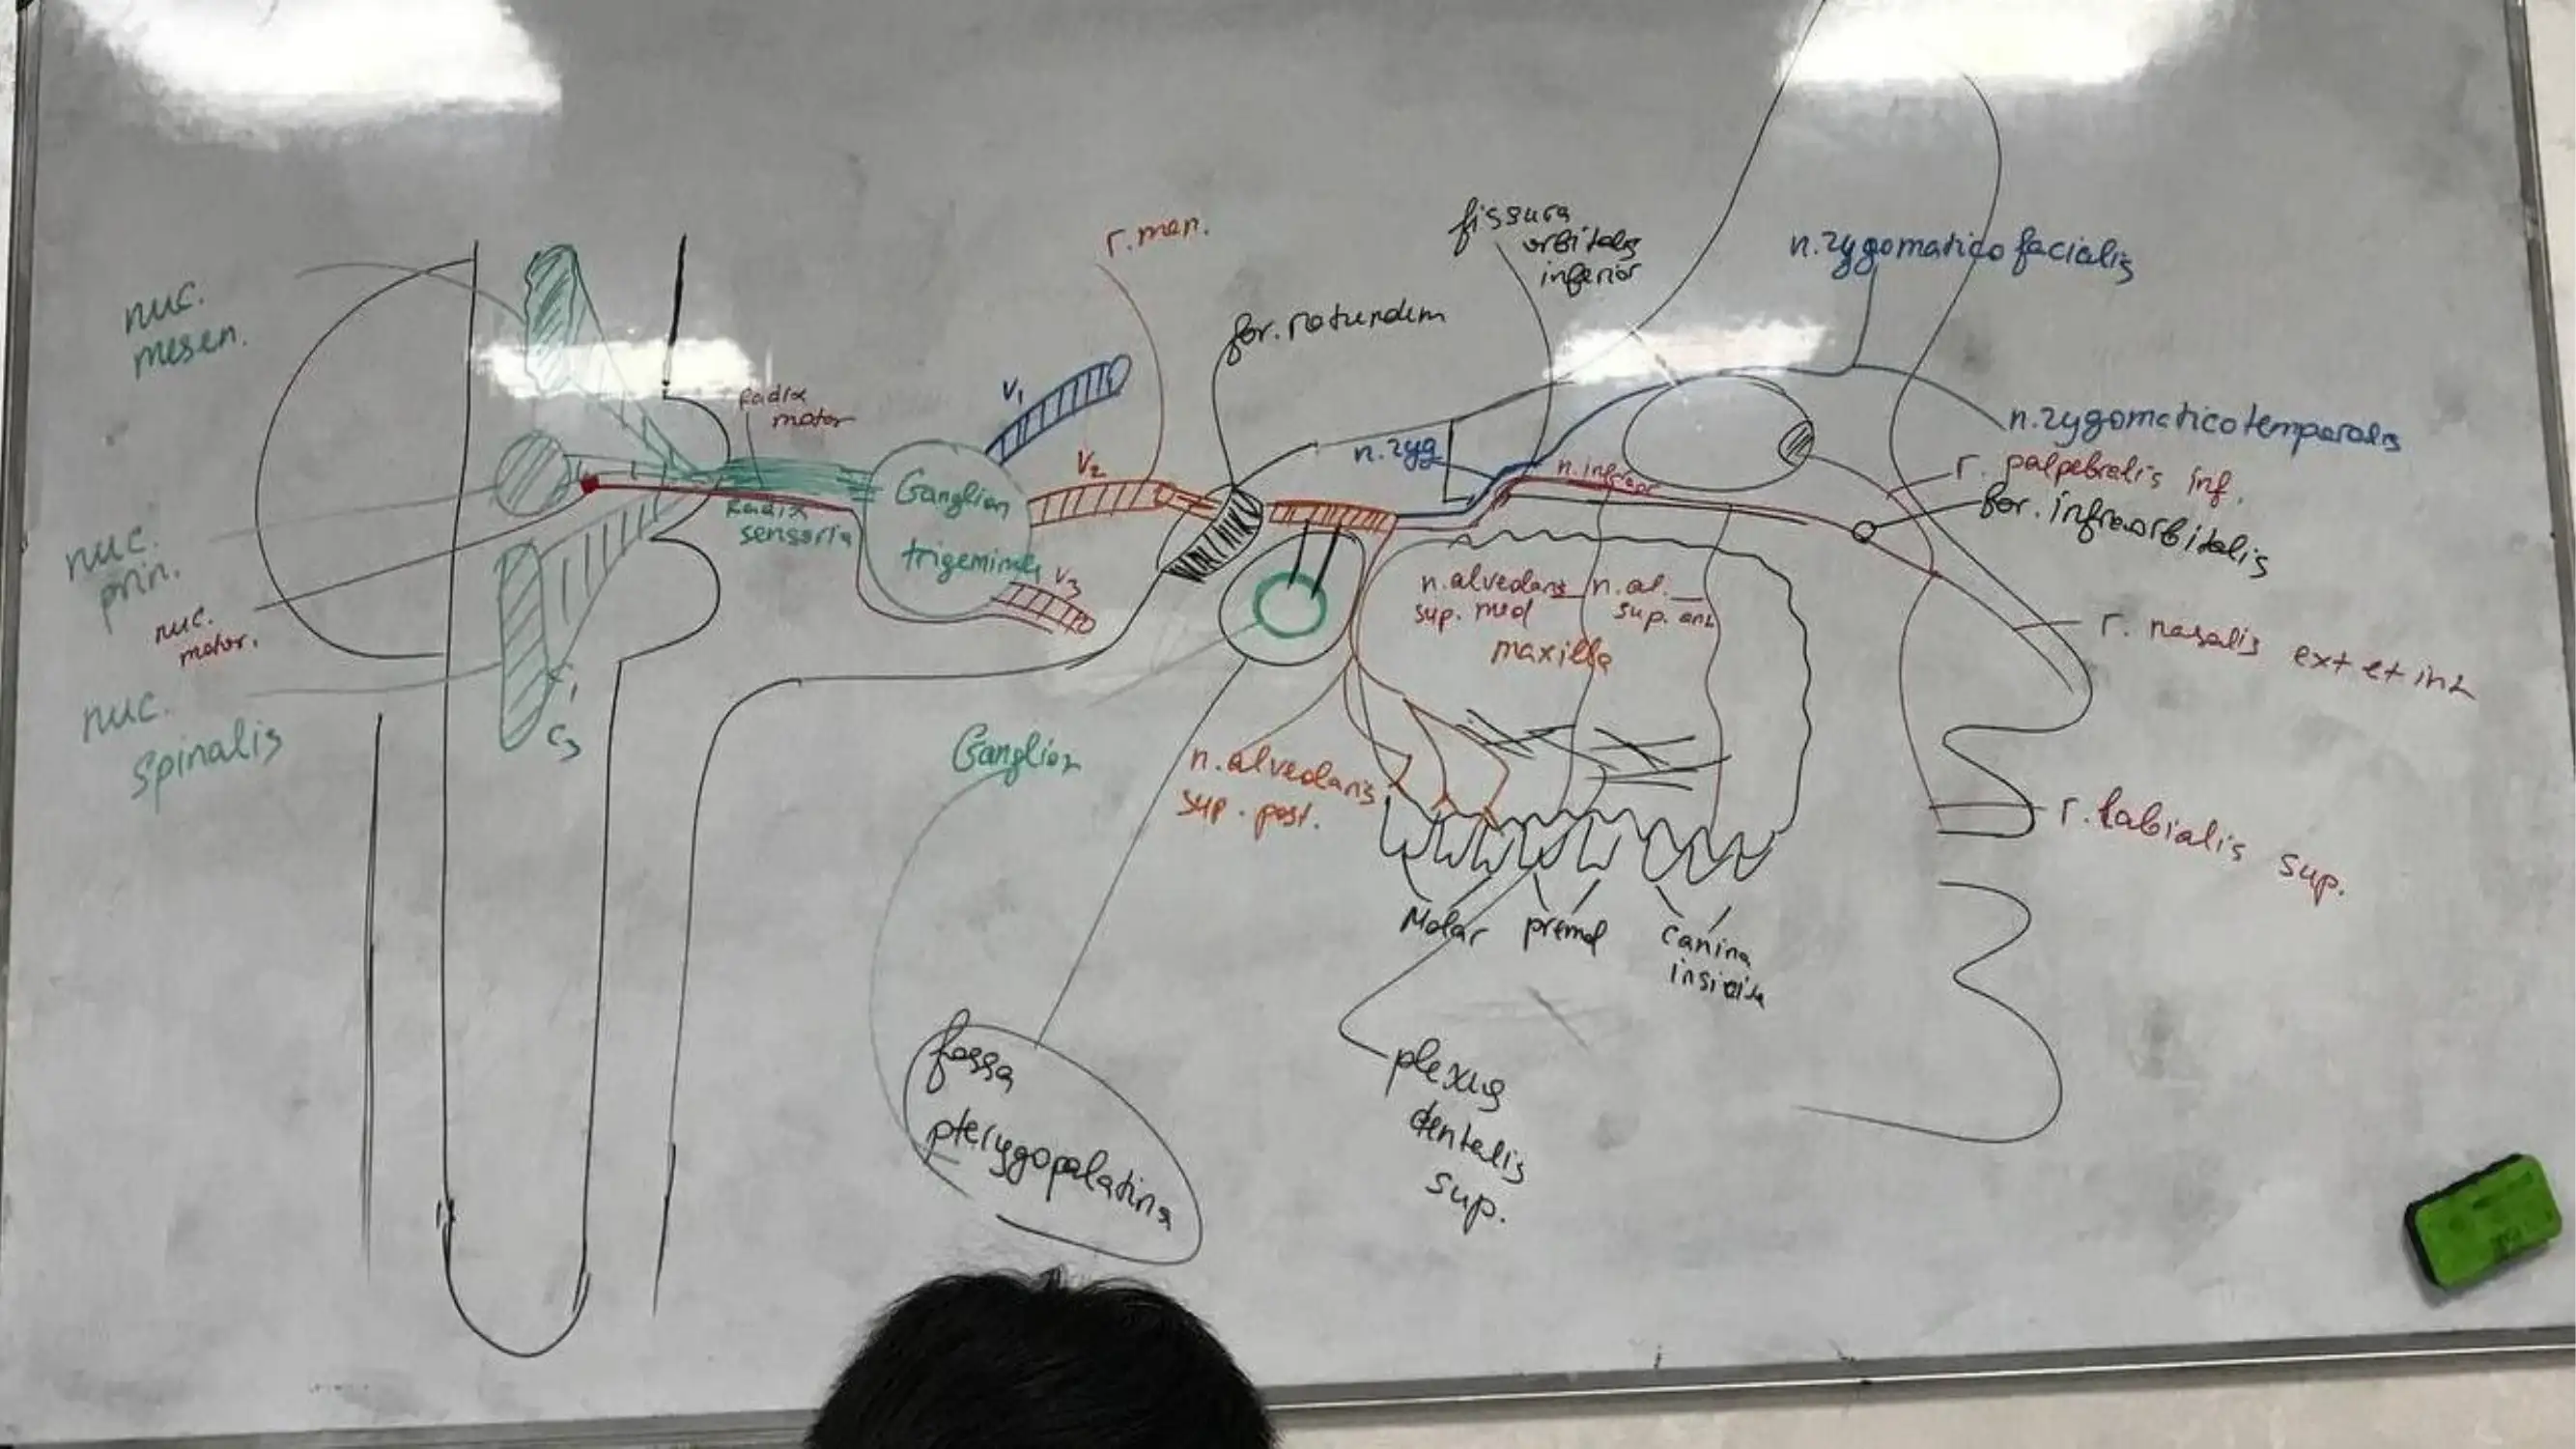 nuc.
mesen.
nuc.
prin.
nuc.
motor.
nuc.
spinalis
C1
C3
Radix
motor
Radix
sensoria
Ganglion
trigeminale
V1
V2
V3
r. men.
for. rotundum
fissura
orbitalis
inferior
n. zyg
n. infraor
n. zygomatico facialis
n. zygomaticotemporalis
r. palpebralis inf.
for. infraorbitalis
r. nasalis ext et int
r. labialis sup.
n. alveolaris
sup. med
n. al.
sup. ant
maxilla
Ganglion
n. alveolaris
sup. post.
Molar
premol
canina
fossa
pterygopalatina
plexus
dentalis
sup.